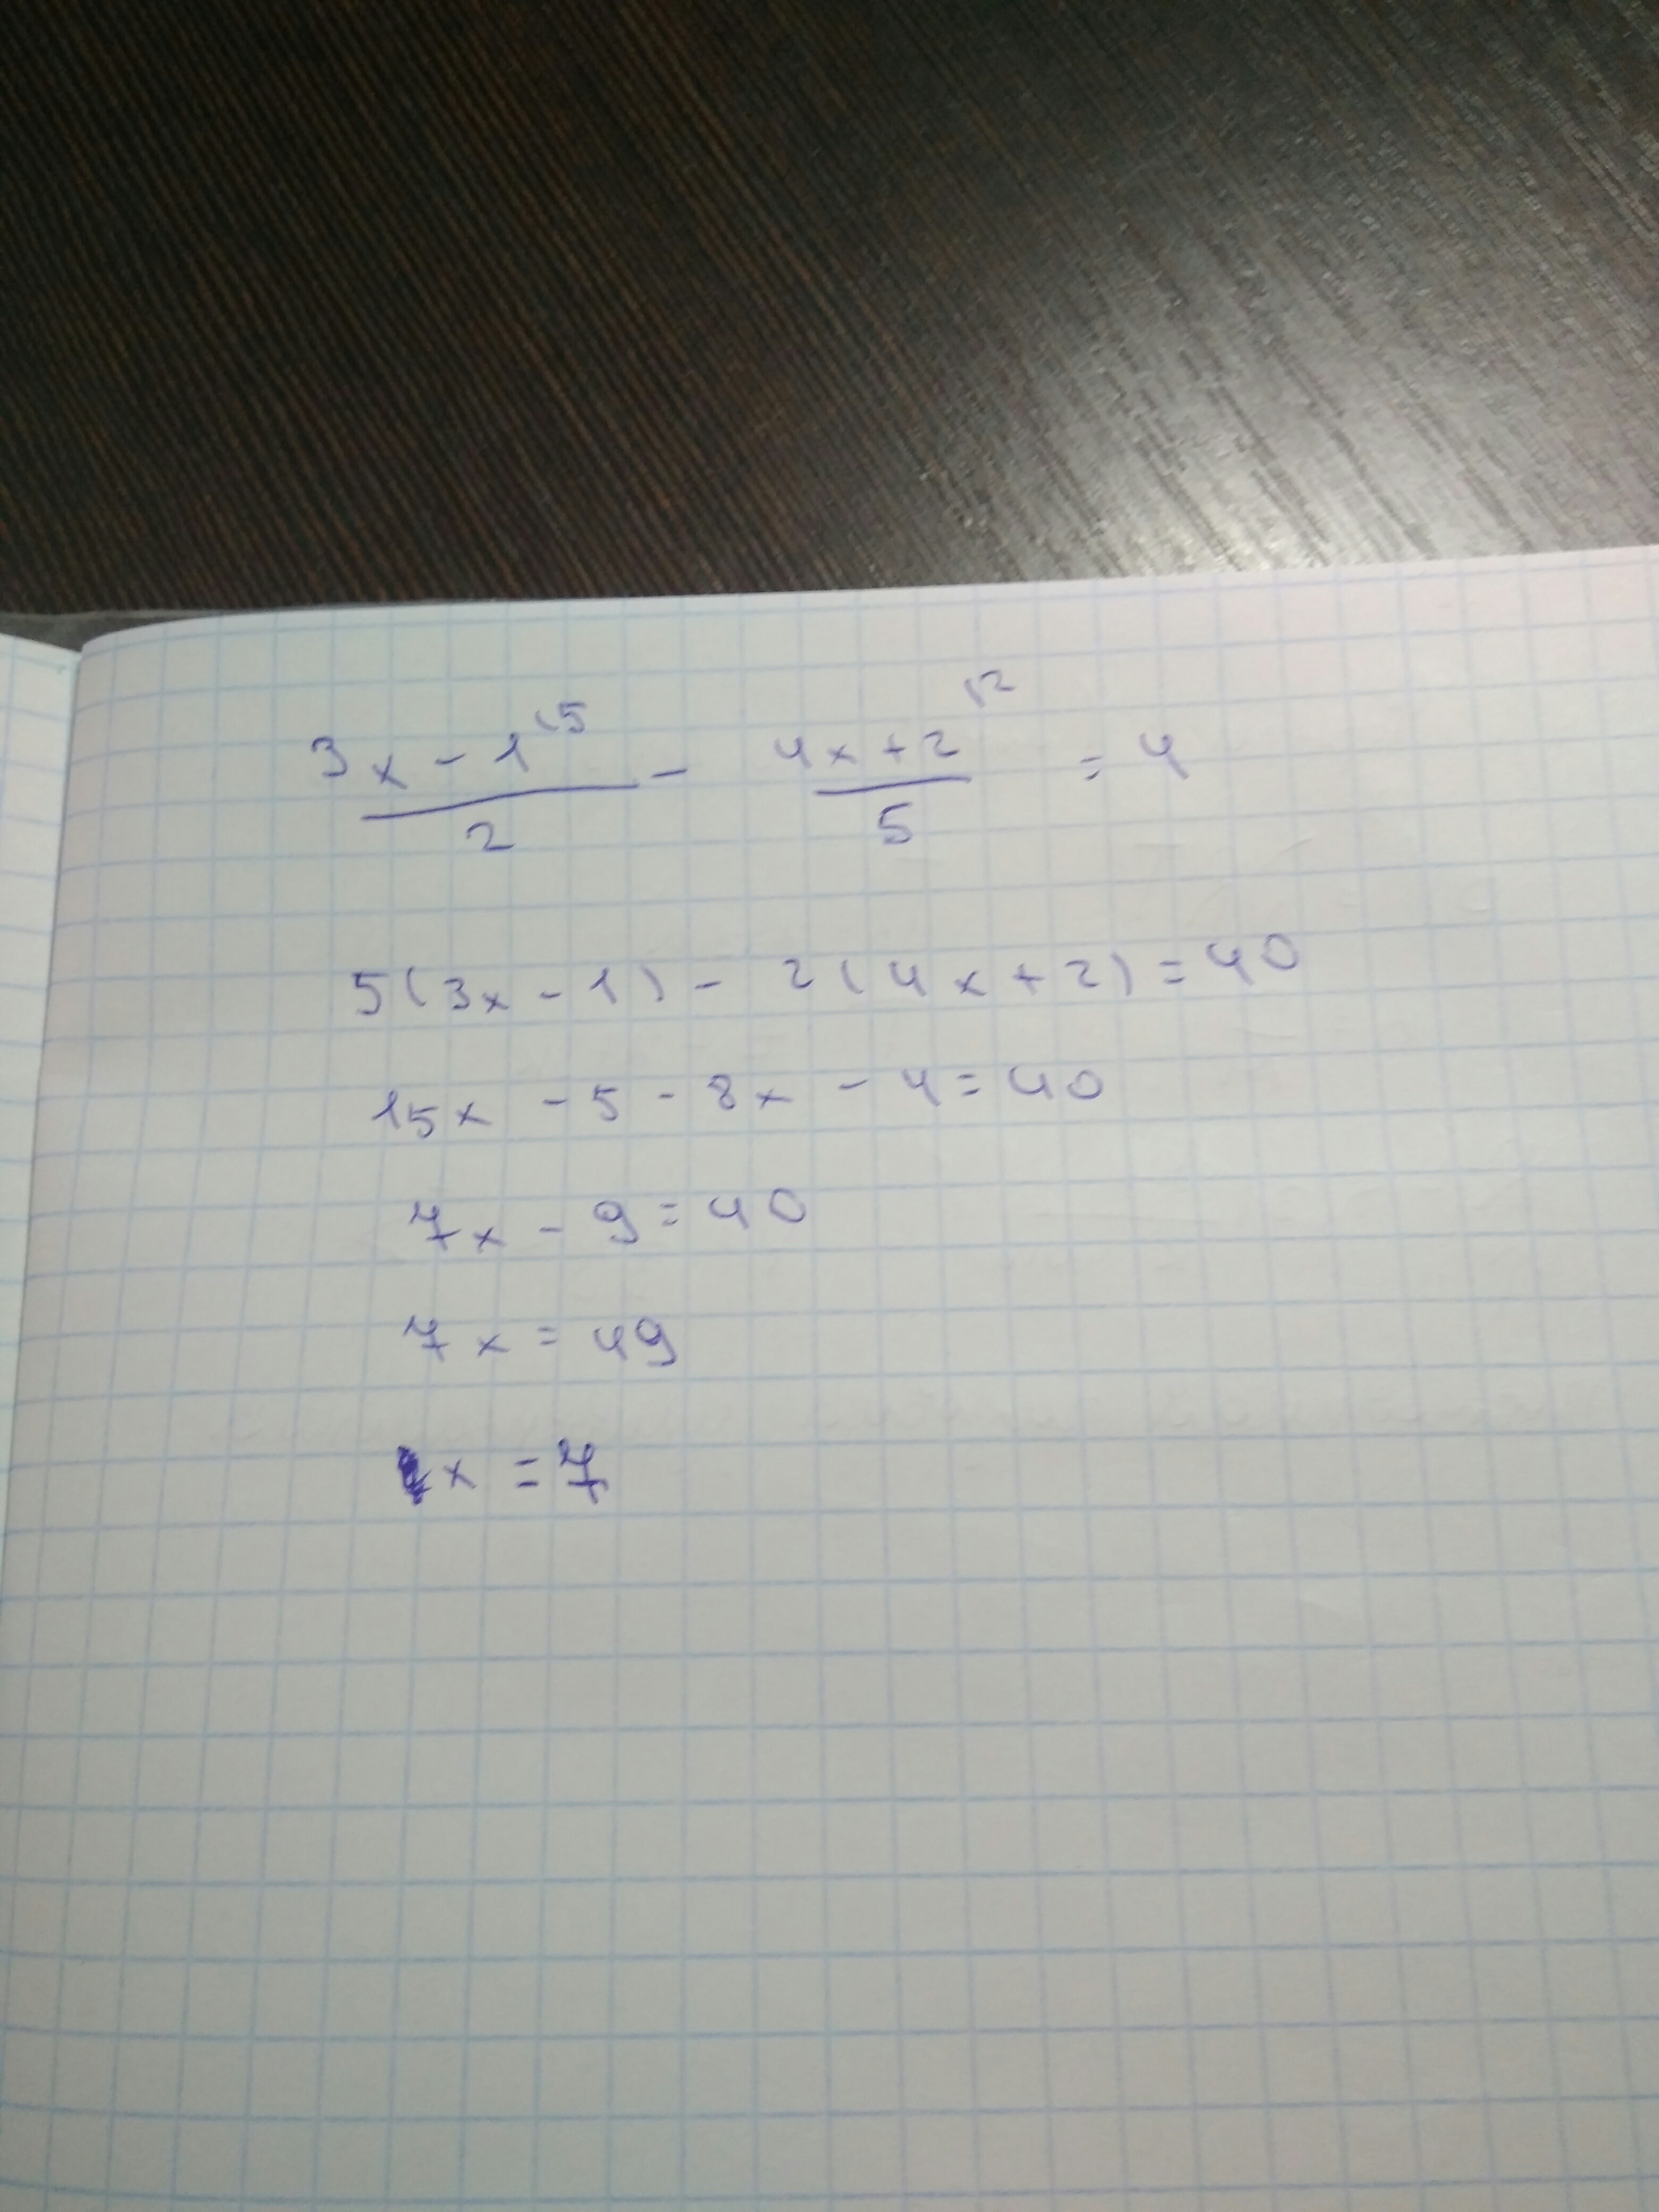 (3x - 1)/2 ⁽⁵ - (4x + 2)/5 ⁽² = 4
5(3x - 1) - 2(4x + 2) = 40
15x - 5 - 8x - 4 = 40
7x - 9 = 40
7x = 49
x = 7